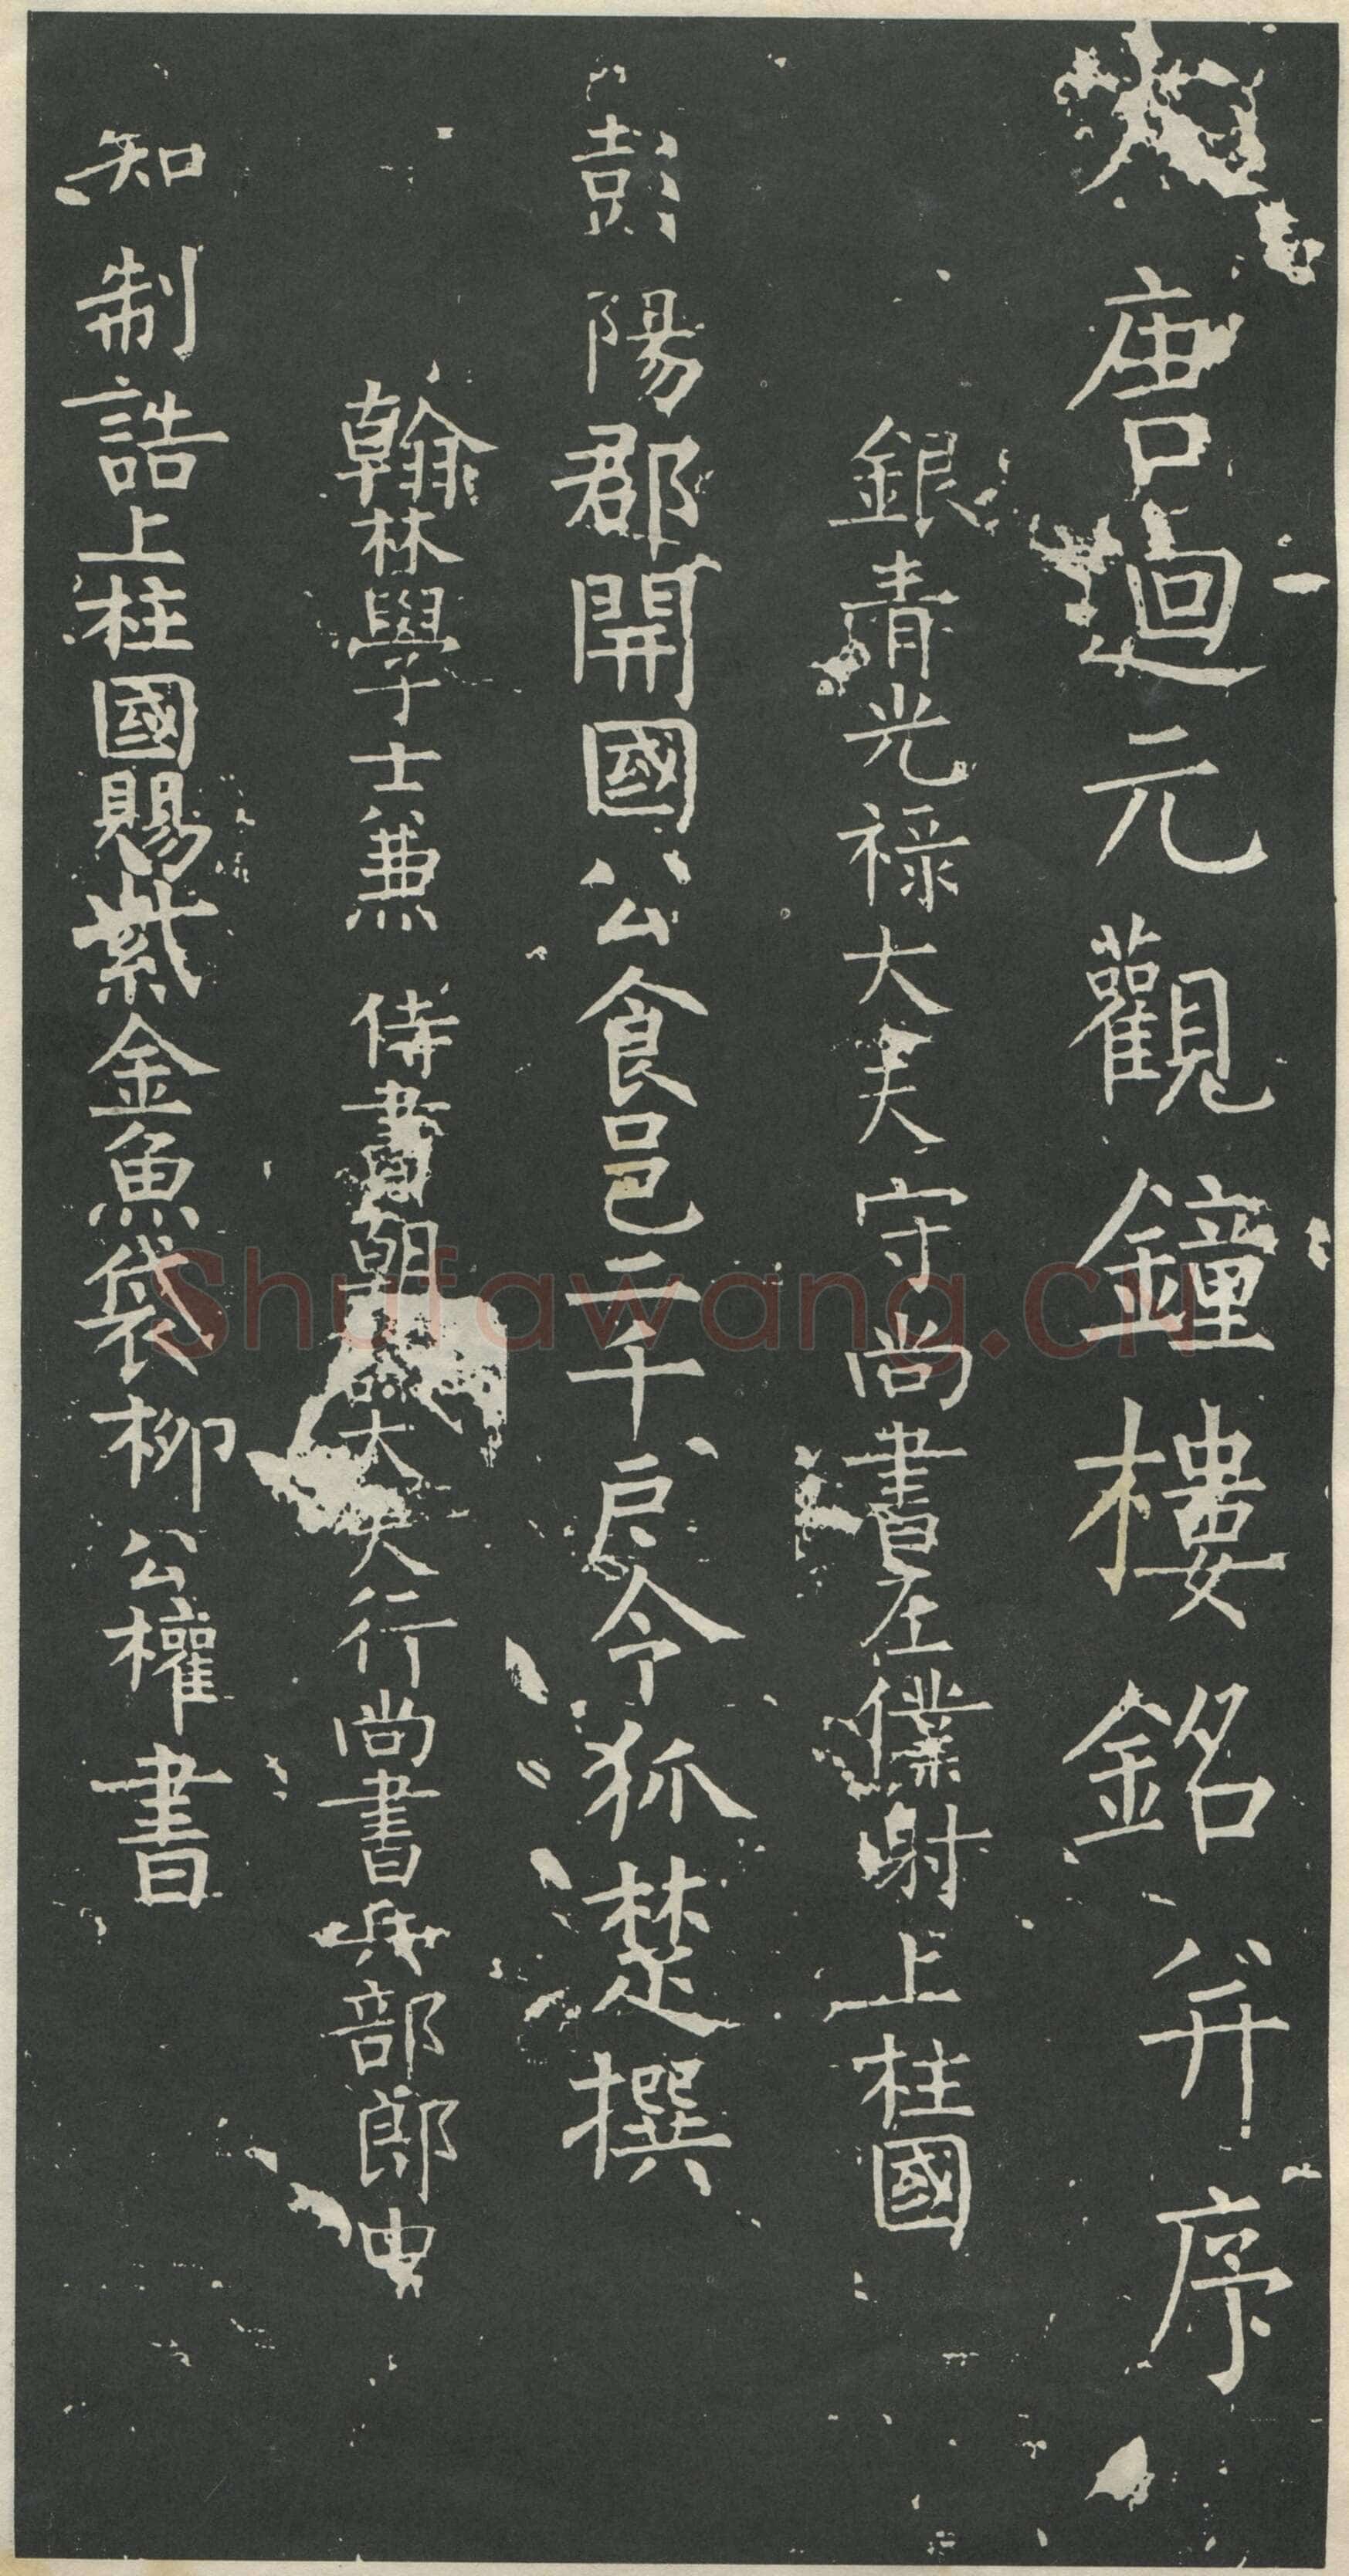 大唐迴元觀鐘樓銘并序
銀青光祿大夫守尚書左僕射上柱國
彭陽郡開國公食邑二千戶令狐楚撰
翰林學士兼侍書朝議大夫行尚書兵部郎中
知制誥上柱國賜紫金魚袋柳公權書
Shufawang.CN